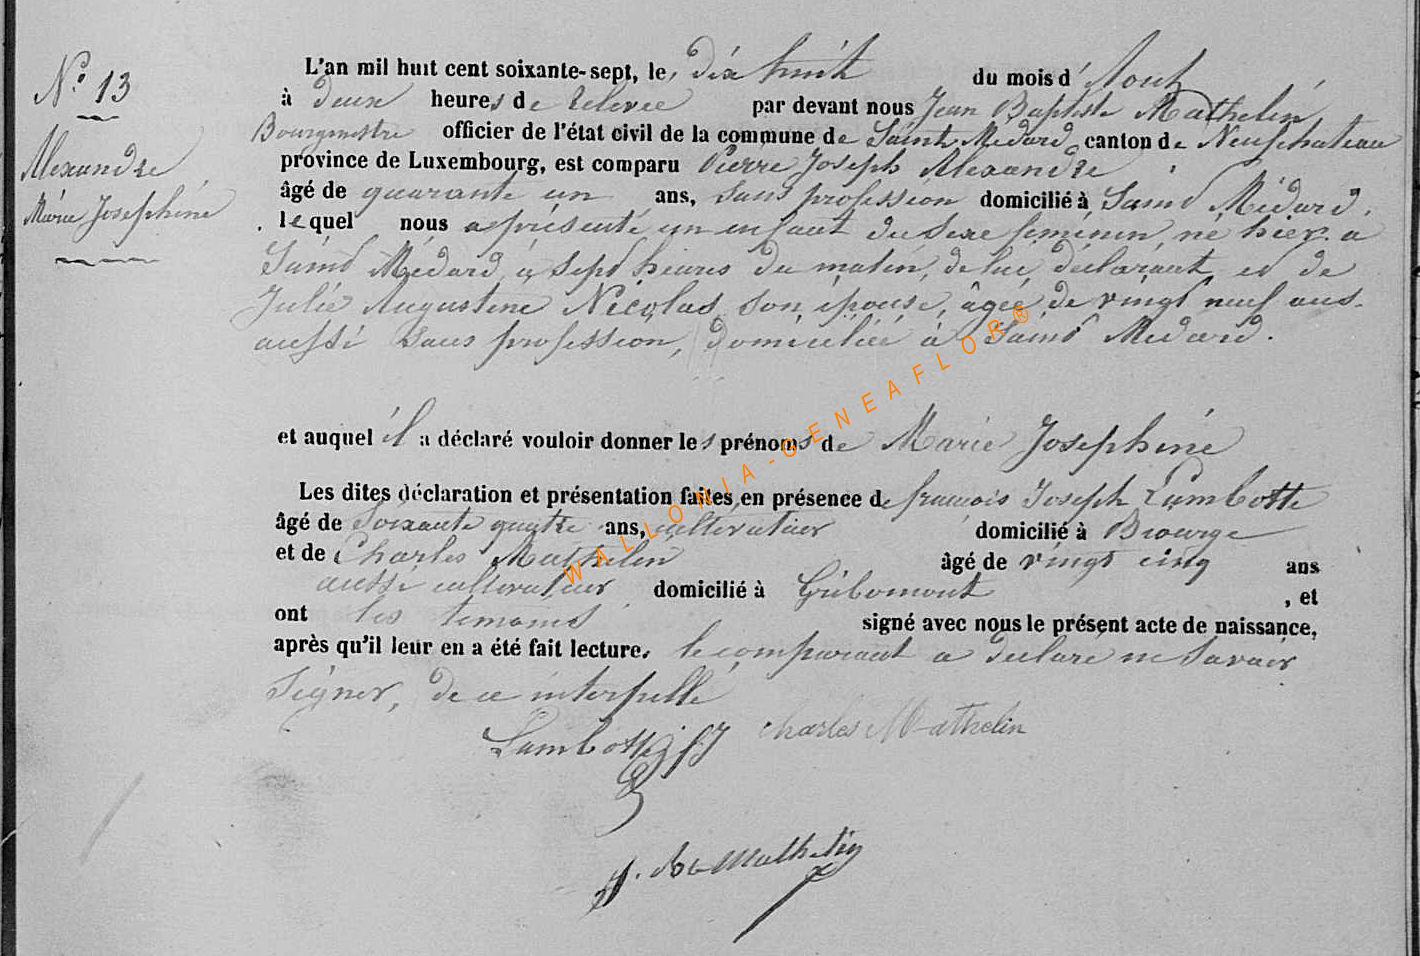 N° 13
Alexandre
Marie Joséphine
L'an mil huit cent soixante-sept, le dix huit du mois d'Aout
à deux heures de relevée par devant nous Jean Baptiste Mathelin
Bourgmestre officier de l'état civil de la commune de Saint Médard, canton de Neufchateau
province de Luxembourg, est comparu Pierre Joseph Alexandre
âgé de quarante un ans, sans profession domicilié à Saint Médard,
lequel nous a présenté un enfant du sexe féminin, né hier a
Saint Médard, à sept heures du matin, de lui, déclarant et de
Julie Augustine Nicolas son épouse, âgée de vingt neuf ans.
aussi sans profession, domiciliée à Saint Médard.
et auquel il a déclaré vouloir donner les prénoms de Marie Joséphine
Les dites déclaration et présentation faites en présence de françois Joseph Lambotte
âgé de soixante quatre ans, cultivateur domicilié à Biourge
et de Charles Mathelin âgé de vingt cinq ans
aussi cultivateur domicilié à Gribomont, et
ont les témoins signé avec nous le présent acte de naissance,
après qu'il leur en a été fait lecture. le comparant a déclaré ne savoir
signer, de ce interpellé
Lambotte fJ Charles Mathelin
J. Bte Mathelin
WALLONIA-GENEAFLOR®